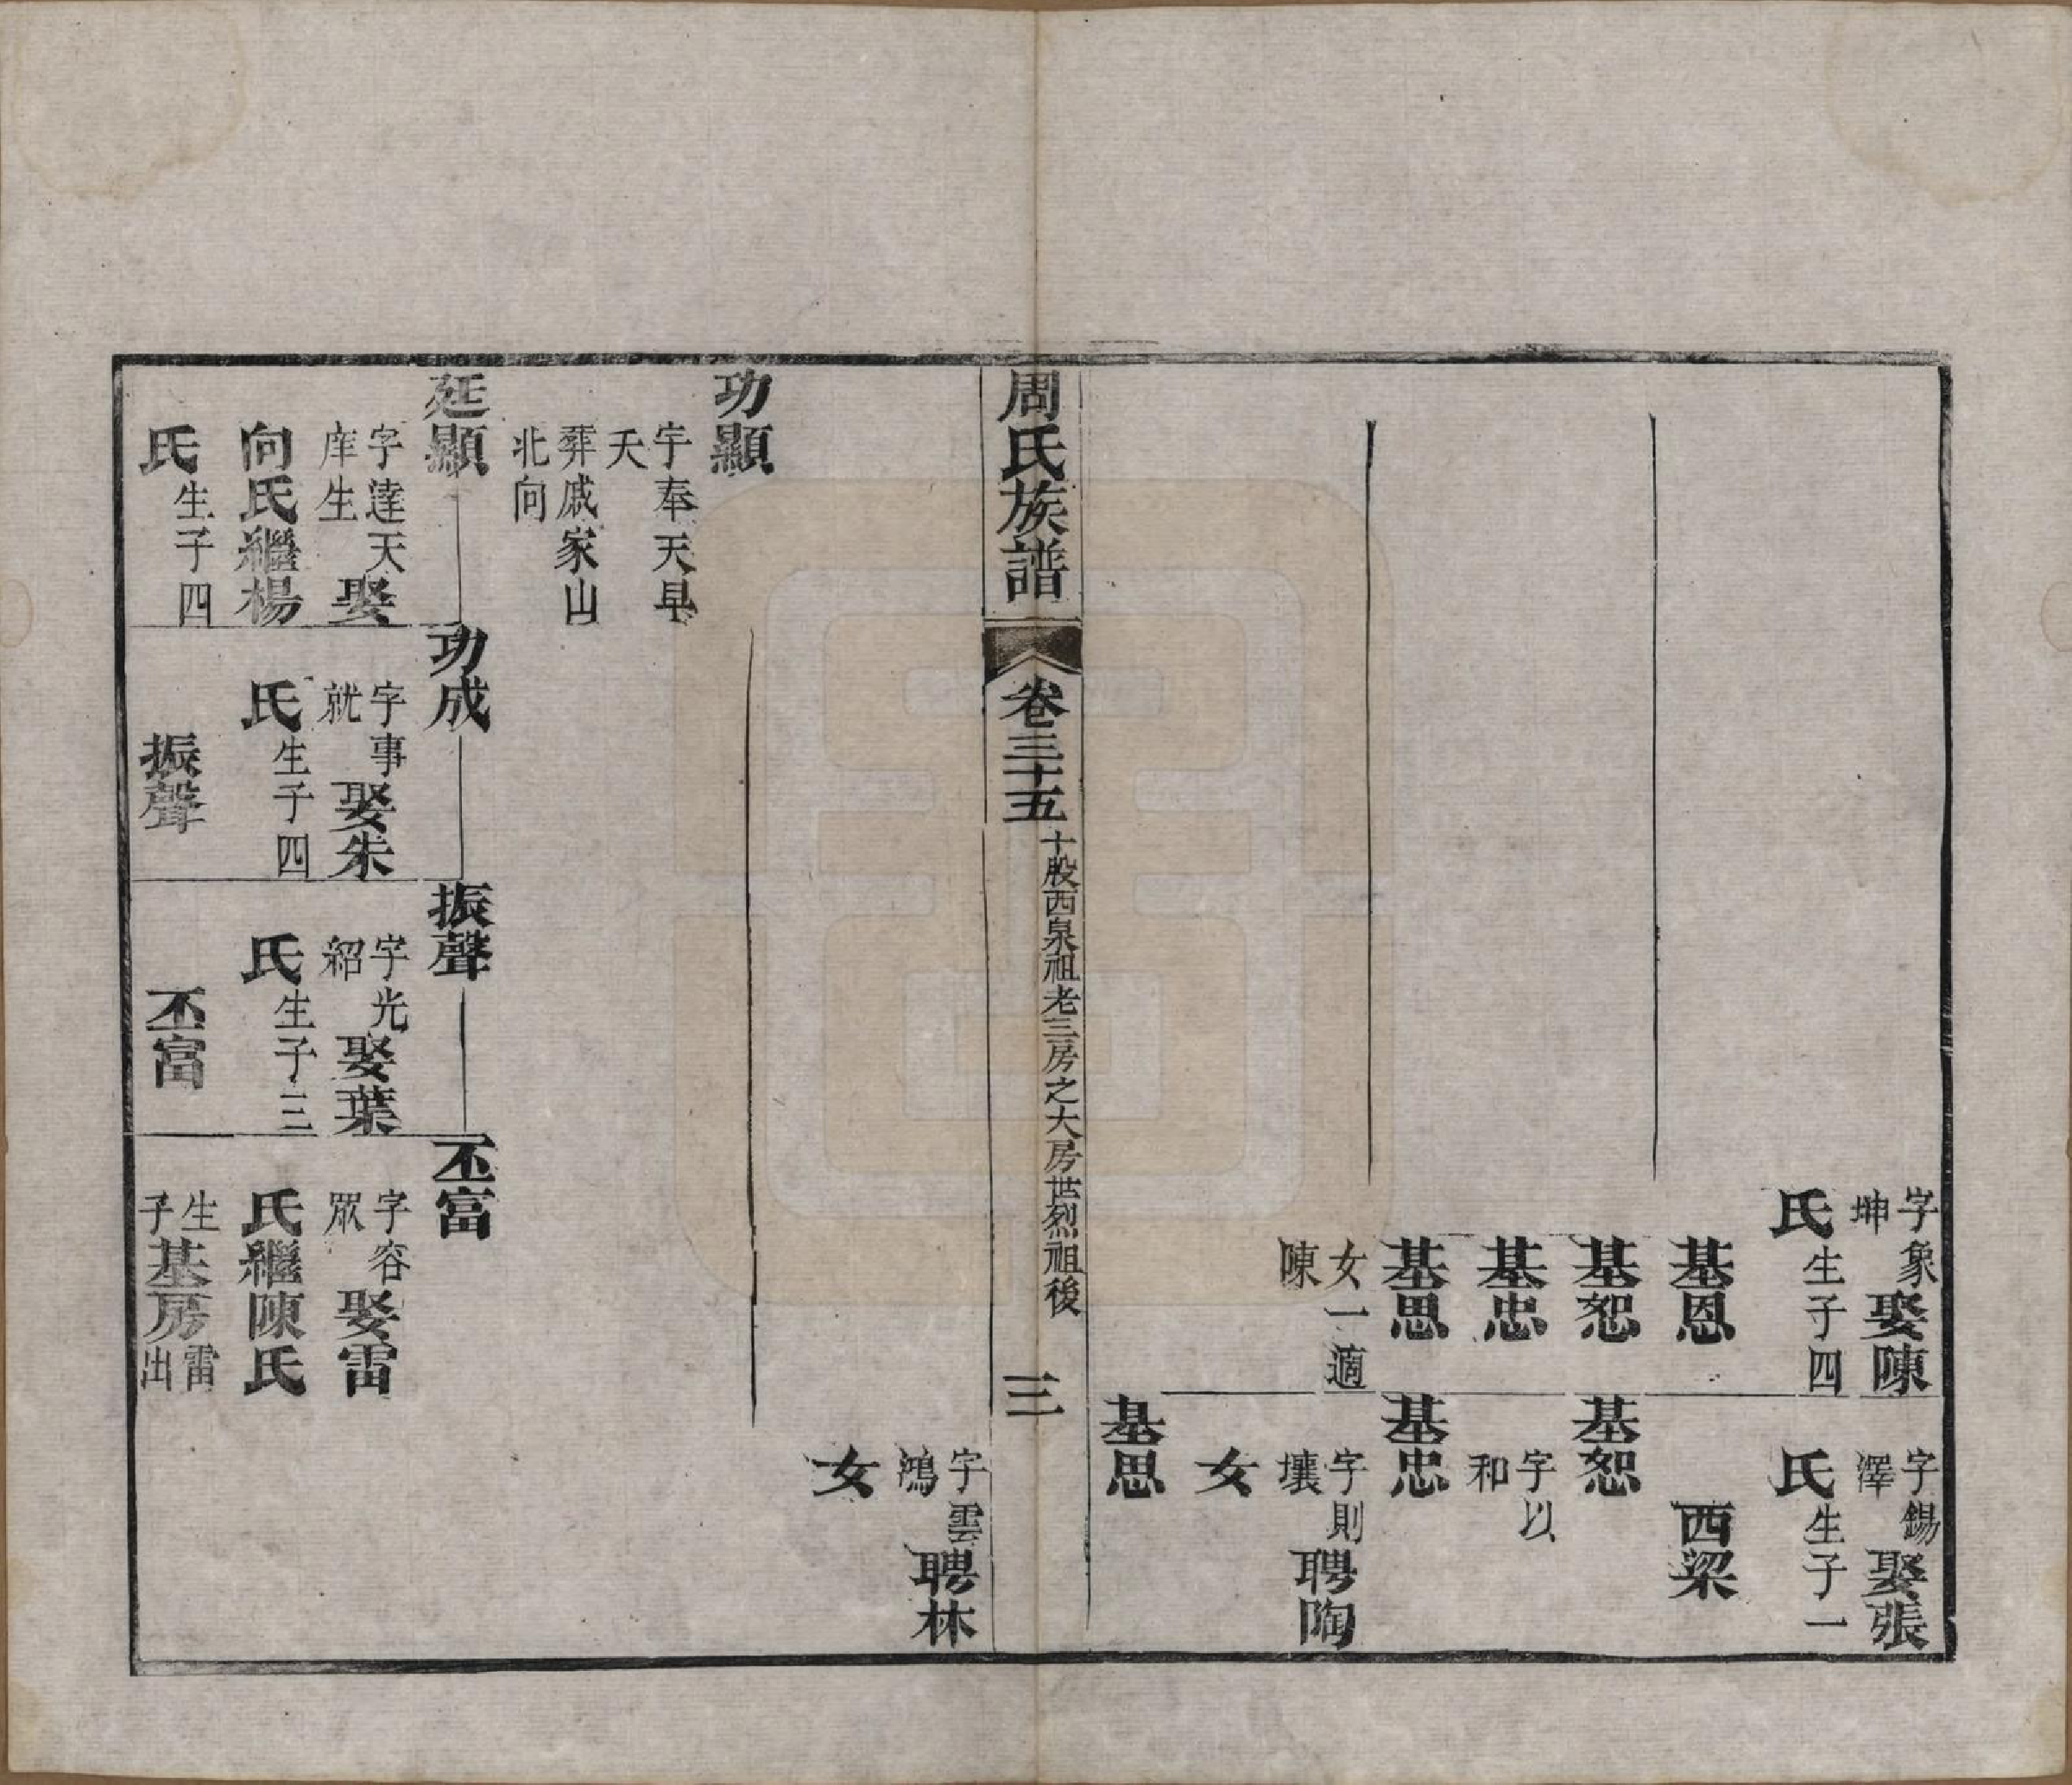 字象坤娶陳
氏生子四
基恩
基恕
基忠
基思
女一適陳
字錫澤娶張
氏生子一
西梁
基恕
字以和
基忠
字則壤聘陶
女
基思
周氏族譜
卷三十五
十股西泉祖老三房之大房世烈祖後
三
字雲鴻聘林
女
功顯
字奉天早夭
葬戚家山北向
廷顯
字達天庠生娶
向氏繼楊
氏生子四
功成
字事就娶朱
氏生子四
振聲
振聲
字光紹娶葉
氏生子三
丕富
丕富
字容眾娶雷
氏繼陳氏
生子基房雷出